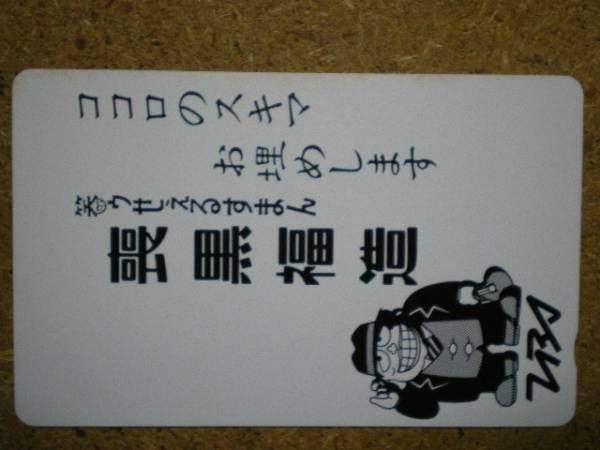 ココロのスキマ
お埋めします
笑ゥせぇるすまん
喪黒福造
TBS